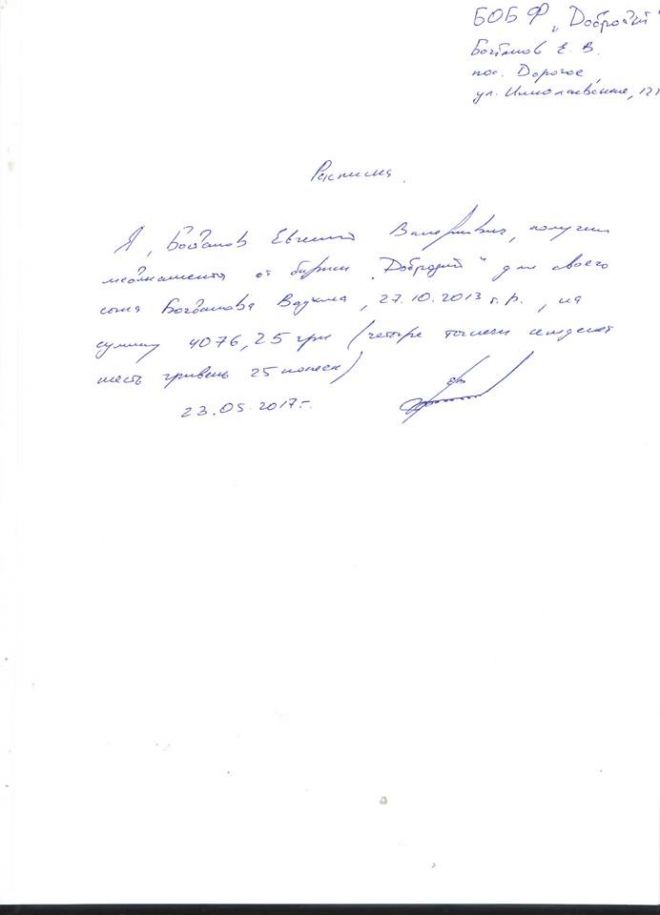 БОБФ „Добродій"
Богданов Е. В.
пос. Дорогое,
ул.
Расписка.
Я, Богданов Евгений Валериевич, получил
медикаменты от биржи „Добродій" для своего
сына Богданова Вадима, 27.10.2013 г.р., на
сумму 4076,25 грн (четыре тысячи семьдесят
шесть гривень 25 копеек)
23.05.2017г.